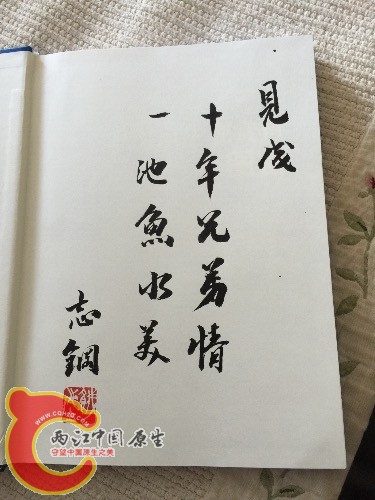 見成
十年兄弟情
一池魚水美
志鋼
两江中国原生
守望中国原生之美
www.cqnzd.com